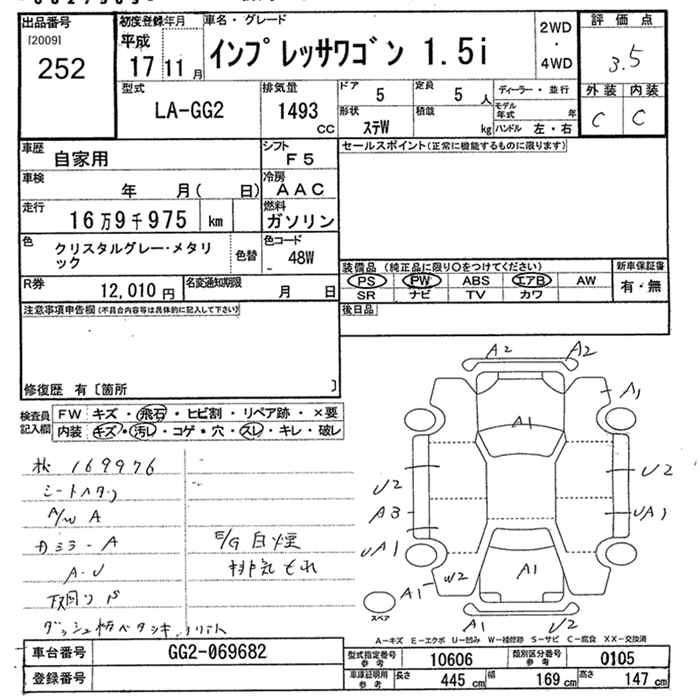 出品番号
[2009]
252
初度登録年月
平成
17 11月
車名・グレード
インプレッサワゴン 1.5i
2WD
・
4WD
評価点
3.5
外装 内装
C C
型式
LA-GG2
排気量
1493
CC
ドア
5
定員
5 人
ディーラー・並行
モデル年式 年
形状
ステW
積載
kg
ハンドル 左・右
車歴
自家用
シフト
F5
セールスポイント(正常に機能するものに限ります)
車検
年 月( 日)
冷房
AAC
走行
16万9千975 km
燃料
ガソリン
色
クリスタルグレー・メタリ
ック
色替
色コード
48W
装備品 (純正品に限り○をつけてください)
新車保証書
PS PW ABS エアB AW
有・無
SR ナビ TV カワ
R券
12,010 円
名変通知期限
月 日
後日品
注意事項申告欄(不具合内容等は具体的に記入して下さい)
修復歴 有〔箇所 〕
検査員
記入欄
FW キズ・飛石・ヒビ割・リペア跡・×要
内装 キズ・汚レ・コゲ・穴・スレ・キレ・破レ
169976
A/W A
A-U
E/G 白煙
排気もれ
A2 A2
A1
A1
U2 U2
A3 UA1
UA1
A1 W2 A1
スペア
A1 U2
A-キズ E-エクボ U-凹み W-補修跡 S-サビ C-腐食 XX-交換済
車台番号
GG2-069682
登録番号
型式指定番号
参考
10606
類別区分番号
参考
0105
車庫証明用
参考
長さ
445 cm
幅
169 cm
高さ
147 cm